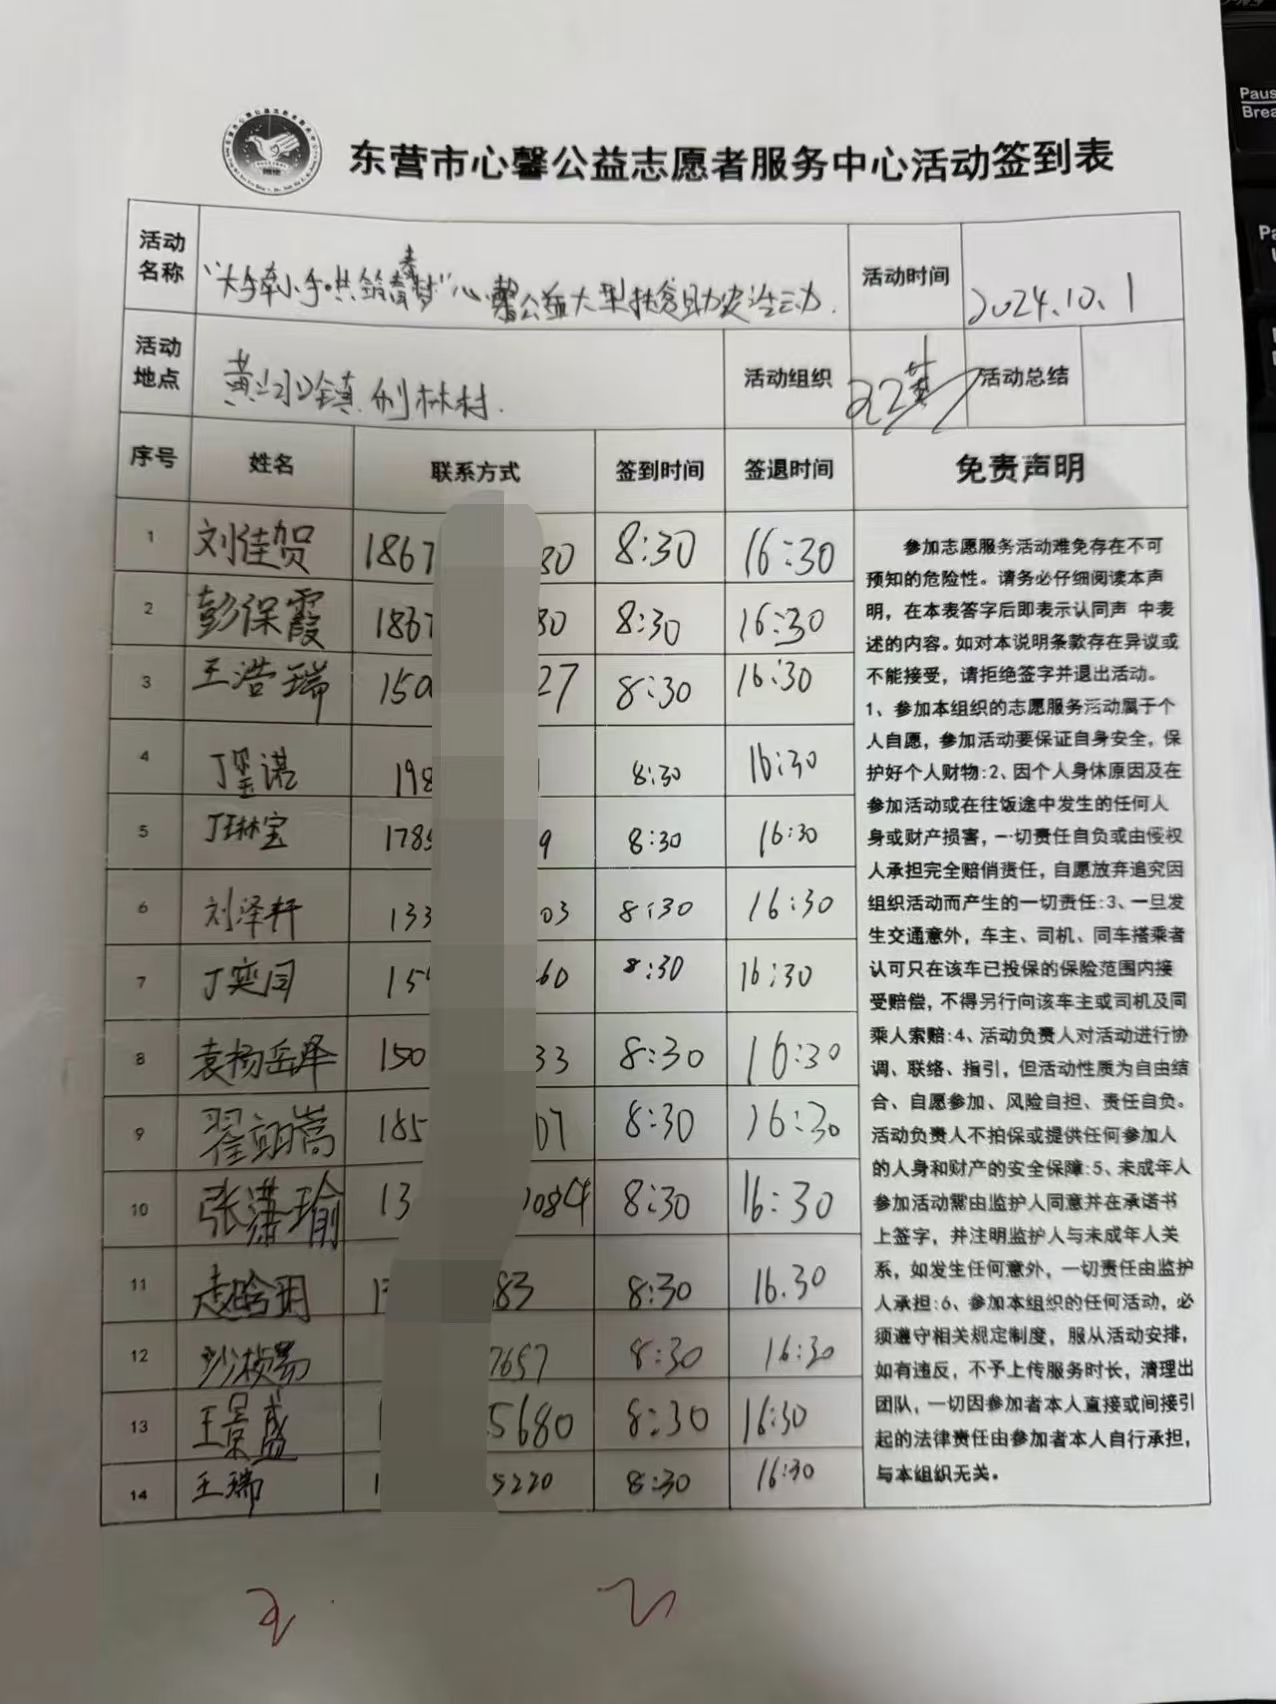 东营市心馨公益志愿者服务中心活动签到表
活动名称 “大手牵小手·共筑青春梦”心馨公益大型扶贫助农活动. 活动时间 2024.10.1
活动地点 黄河口镇 利林村. 活动组织 活动总结
序号 姓名 联系方式 签到时间 签退时间 免责声明
1 刘佳贺 1867 80 8:30 16:30
2 彭保霞 1867 80 8:30 16:30
3 王浩瑞 150 27 8:30 16:30
4 丁玺诺 198 8:30 16:30
5 丁琳宝 1785 9 8:30 16:30
6 刘泽轩 133 03 8:30 16:30
7 丁奕同 15 60 8:30 16:30
8 袁杨岳泽 150 33 8:30 16:30
9 翟翊嵩 185 07 8:30 16:30
10 张潇瑜 13 084 8:30 16:30
11 赵晗玥 1 83 8:30 16.30
12 7657 8:30 16:30
13 王景盛 5680 8:30 16:30
14 王瑞 1 5220 8:30 16:30
参加志愿服务活动难免存在不可
预知的危险性。请务必仔细阅读本声
明，在本表答字后即表示认同声 中表
述的内容。如对本说明条款存在异议或
不能接受，请拒绝签字并退出活动。
1、参加本组织的志愿服务活动属于个
人自愿，参加活动要保证自身安全，保
护好个人财物:2、因个人身休原因及在
参加活动或在往饭途中发生的任何人
身或财产损害，一切责任自负或由侵权
人承担完全赔俏责任，自愿放弃追究因
组织活动而产生的一切责任:3、一旦发
生交通意外，车主、司机、同车搭乘者
认可只在该车已投保的保险范围内接
受赔偿，不得另行向该车主或司机及同
乘人索赔:4、活动负责人对活动进行协
调、联络、指引，但活动性质为自由结
合、自愿参加、风险自担、责任自负。
活动负责人不拍保或提供任何参加人
的人身和财产的安全保障:5、未成年人
参加活动需由监护人同意并在承诺书
上签字，并注明监护人与未成年人关
系，如发生任何意外，一切责任由监护
人承担:6、参加本组织的任何活动，必
须遵守相关规定制度，服从活动安排，
如有违反，不予上传服务时长，清理出
团队，一切因参加者本人直接或间接引
起的法律责任由参加者本人自行承担，
与本组织无关。
Pause
Break